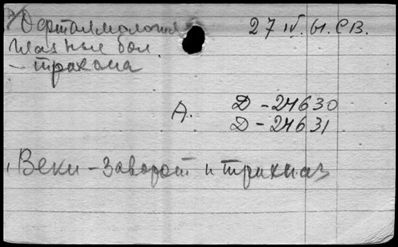 Офталмология
Глазные бол.
– трахома
27 IV. 61. СВ.
А.
Д – 24630
Д – 24631
Веки – заворот и трихиаз